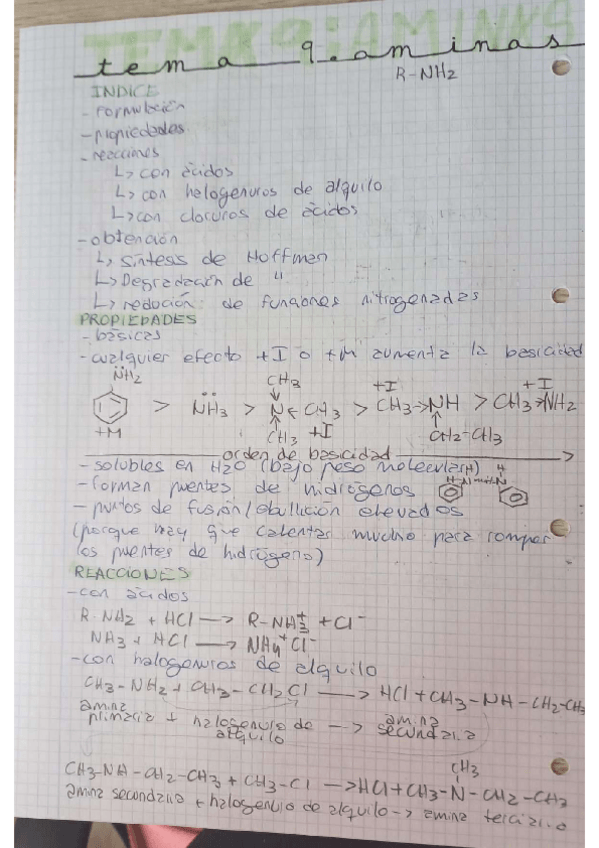 TEMA 9: AMINAS
tema 9. aminas
R-NH2
INDICE
- Formulación
- propiedades
- reacciones
↳ con ácidos
↳ con halogenuros de alquilo
↳ con cloruros de ácidos
- obtención
↳ síntesis de Hoffman
↳ Degradación de "
↳ redución: de funciones nitrogenadas
PROPIEDADES
- básicas
- cualquier efecto +I o +M aumenta la basicidad
N̈H2 +M > N̈H3 > CH3 N ← CH3 CH3 +I > +I CH3→NH CH2-CH3 > +I CH3→NH2
orden de basicidad
- solubles en H2O (bajo peso molecular)
- forman puentes de hidrógenos
- puntos de fusión/ebullición elevados
(porque hay que calentar mucho para romper
los puentes de hidrógeno)
REACCIONES
- con ácidos
R-NH2 + HCl → R-NH3+ + Cl-
NH3 + HCl → NH4+ Cl-
- con halogenuros de alquilo
CH3-NH2 + CH3-CH2Cl → HCl + CH3-NH-CH2-CH3
amina primaria + halogenuro de alquilo → amina secundaria
CH3
CH3-NH-CH2-CH3 + CH3-Cl → HCl + CH3-N-CH2-CH3
amina secundaria + halogenuro de alquilo → amina terciaria